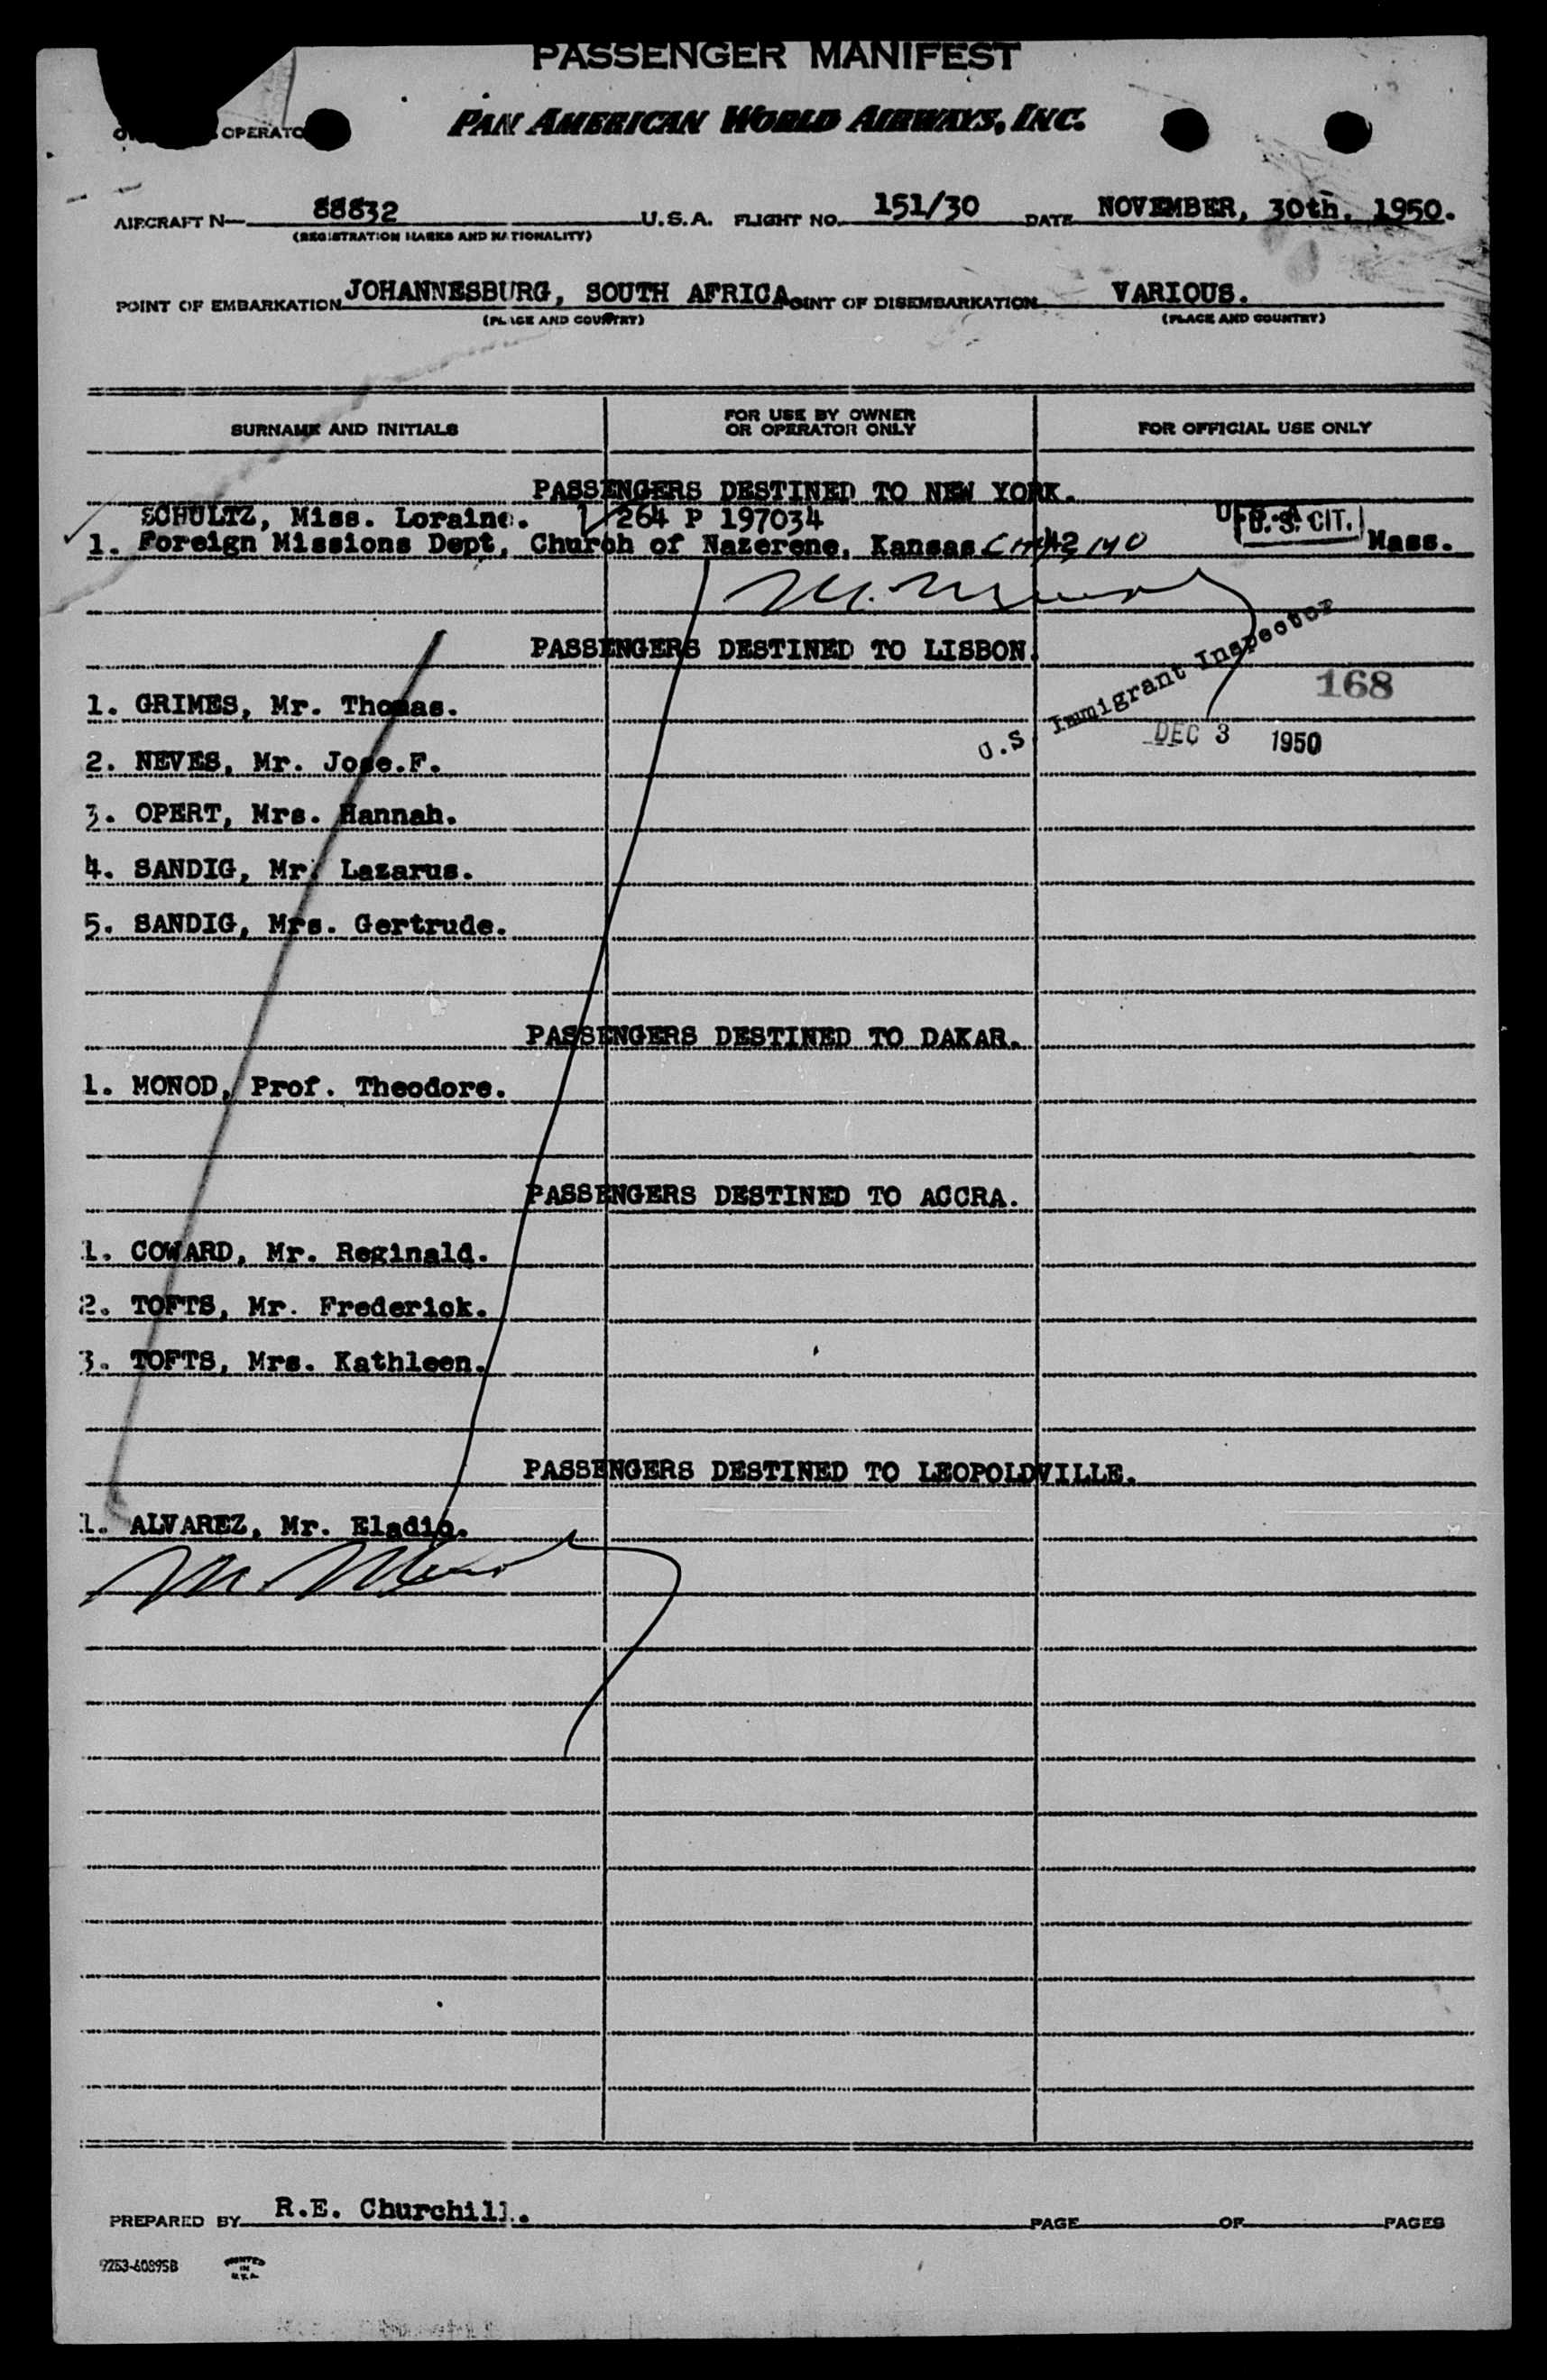 PASSENGER MANIFEST
OPERATO
PAN AMERICAN WORLD AIRWAYS, INC.
AIRCRAFT N— 88832 U.S.A. FLIGHT NO. 151/30 DATE NOVEMBER, 30th, 1950.
(REGISTRATION MARKS AND NATIONALITY)
POINT OF EMBARKATION JOHANNESBURG, SOUTH AFRICA OINT OF DISEMBARKATION VARIOUS.
(PLACE AND COUNTRY) (PLACE AND COUNTRY)
SURNAME AND INITIALS FOR USE BY OWNER OR OPERATOR ONLY FOR OFFICIAL USE ONLY
PASSENGERS DESTINED TO NEW YORK.
SCHULTZ, Miss. Loraine. 1 264 P 197034 U.S. CIT.
1. Foreign Missions Dept, Church of Nazerene, Kansas City 42 MO Mass.
PASSENGERS DESTINED TO LISBON.
U.S. Immigrant Inspector
168
1. GRIMES, Mr. Thomas.
DEC 3 1950
2. NEVES, Mr. Jose.F.
3. OPERT, Mrs. Hannah.
4. SANDIG, Mr. Lazarus.
5. SANDIG, Mrs. Gertrude.
PASSENGERS DESTINED TO DAKAR.
1. MONOD, Prof. Theodore.
PASSENGERS DESTINED TO ACCRA.
1. COWARD, Mr. Reginald.
2. TOFTS, Mr. Frederick.
3. TOFTS, Mrs. Kathleen.
PASSENGERS DESTINED TO LEOPOLDVILLE.
1. ALVAREZ, Mr. Eladio.
PREPARED BY R.E. Churchill. PAGE OF PAGES
9253-60895B PRINTED IN U.S.A.